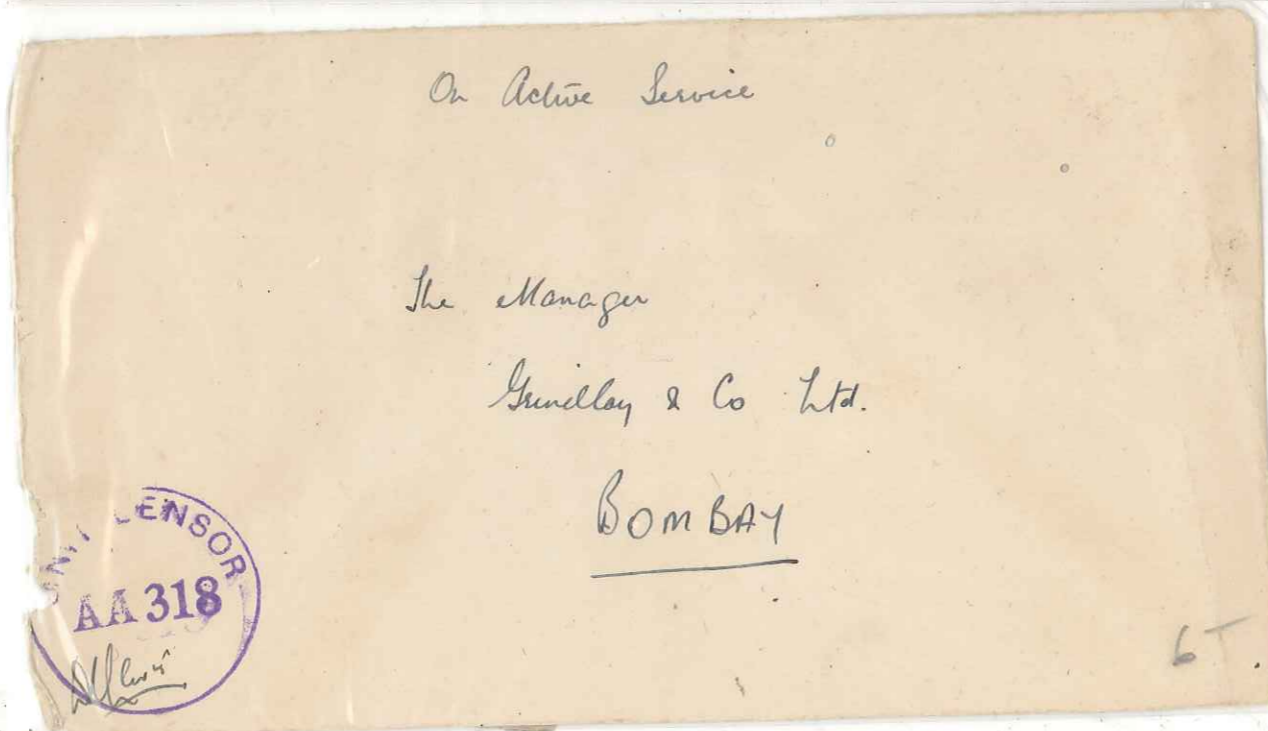 On Active Service
The Manager
Grindlay & Co Ltd.
BOMBAY
UNIT CENSOR
AA 318
6